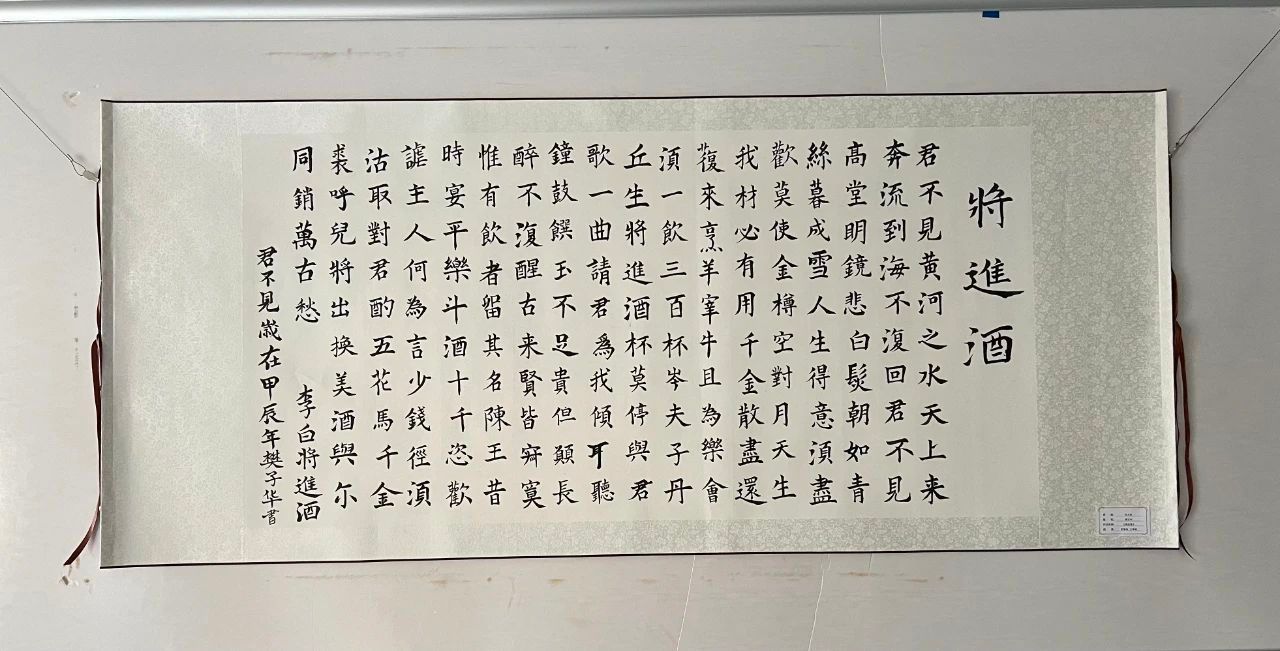 將進酒
君不見黄河之水天上来
奔流到海不復回君不見
高堂明鏡悲白髮朝如青
絲暮成雪人生得意湏盡
歡莫使金樽空對月天生
我材必有用千金散盡還
蕧來烹羊宰牛且為樂會
湏一飲三百杯岑夫子丹
丘生將進酒杯莫停與君
歌一曲請君爲我傾耳聽
鐘鼓饌玉不足貴但顛長
醉不復醒古来賢皆寂寞
惟有飲者留其名陳王昔
時宴平樂斗酒十千恣歡
謔主人何為言少錢徑湏
沽取對君酌五花馬千金
裘呼兒將出换美酒與尔
同銷萬古愁 李白將進酒
君不見嵗在甲辰年樊子华書